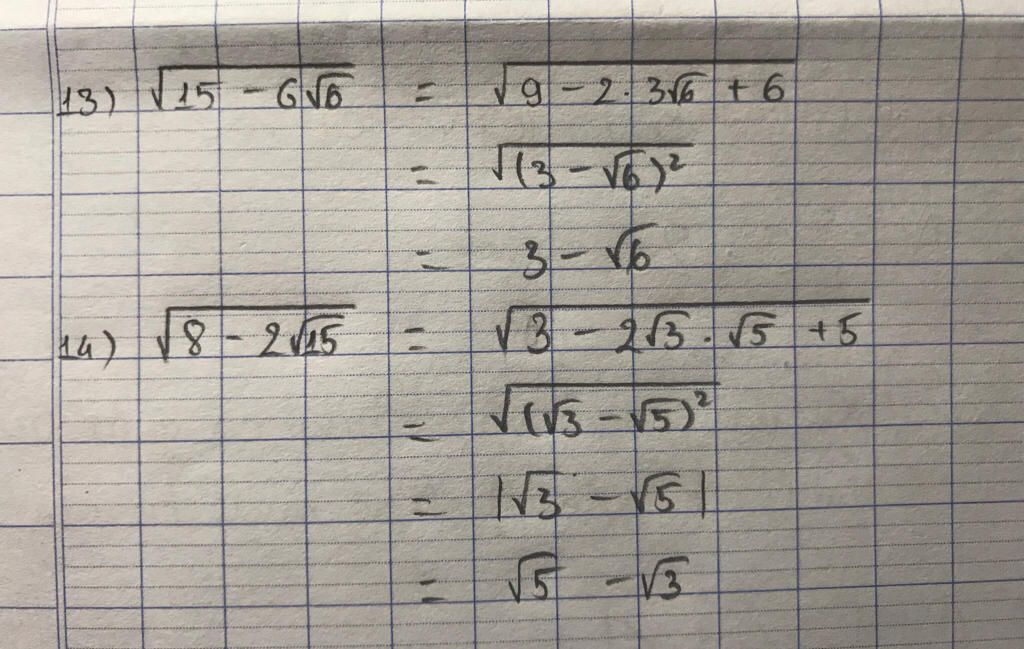 13) √(15 - 6√6) = √(9 - 2·3√6 + 6)
= √((3 - √6)²)
= 3 - √6
14) √(8 - 2√15) = √(3 - 2√3·√5 + 5)
= √((√3 - √5)²)
= |√3 - √5|
= √5 - √3